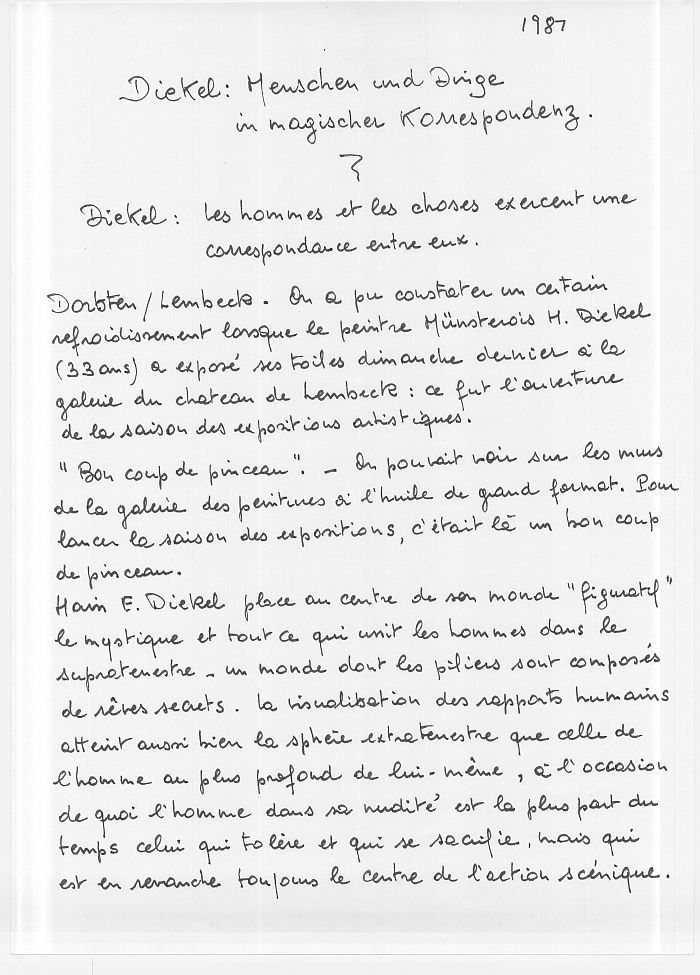 1987
Diekel: Menschen und Dinge
in magischer Korrespondenz.
Diekel: Les hommes et les choses exercent une
correspondance entre eux.
Dorsten/Lembeck. On a pu constater un certain
refroidissement lorsque le peintre Münsterois H. Diekel
(33 ans) a exposé ses toiles dimanche dernier à la
galerie du chateau de Lembeck : ce fut l'ouverture
de la saison des expositions artistiques.
"Bon coup de pinceau". - On pouvait voir sur les murs
de la galerie des peintures à l'huile de grand format. Pour
lancer la saison des expositions, c'était là un bon coup
de pinceau.
Hain E. Diekel place au centre de son monde "figuratif"
le mystique et tout ce qui unit les hommes dans le
supraterrestre - un monde dont les piliers sont composés
de rêves secrets. La visualisation des rapports humains
atteint aussi bien la sphère extraterrestre que celle de
l'homme au plus profond de lui-même, à l'occasion
de quoi l'homme dans sa nudité est la plus part du
temps celui qui tolère et qui se sacrifie, mais qui
est en revanche toujours le centre de l'action scénique.